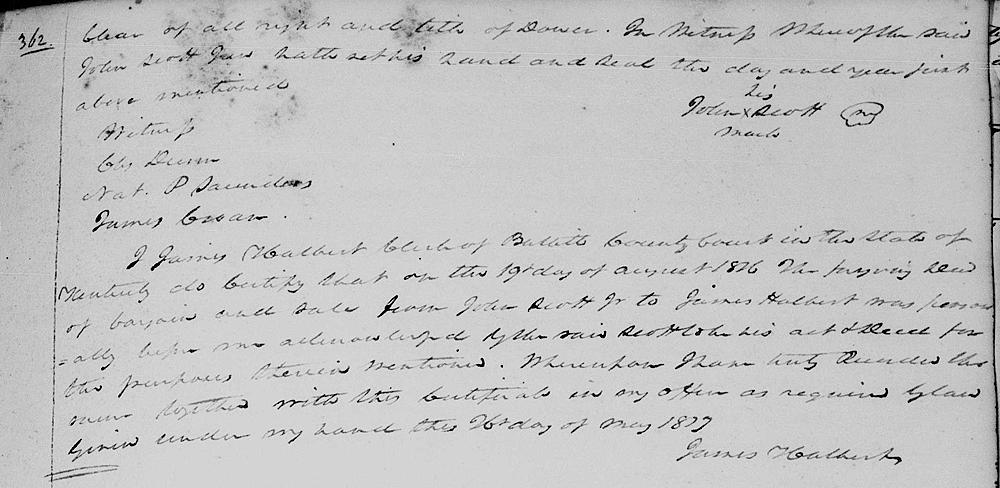 362.
Clear of all right and title of Dower. In Witness Whereof the said
John Scott Junr hath set his hand and seal the day and year first
above mentioned
his
John x Scott
mark
Witness
Nat. P Saunders
James
I James Halbert Clerk of County Court in the State of
Kentucky do Certify that on the 19th day of august 1816 The foregoing Deed
of bargain and sale from John Scott Jr to James Halbert was person
=ally before me acknowledged by the said Scott to be his act & Deed for
the purposes therein mentioned. Whereupon I have truly Recorded the
same together with this Certificate in my office as required by law
Given under my hand this day of may 1817
James Halbert